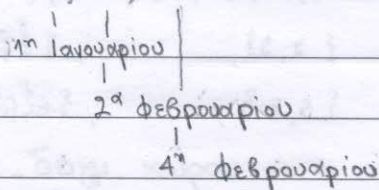 1η Ιανουαρίου
2α Φεβρουαρίου
4η Φεβρουαρίου